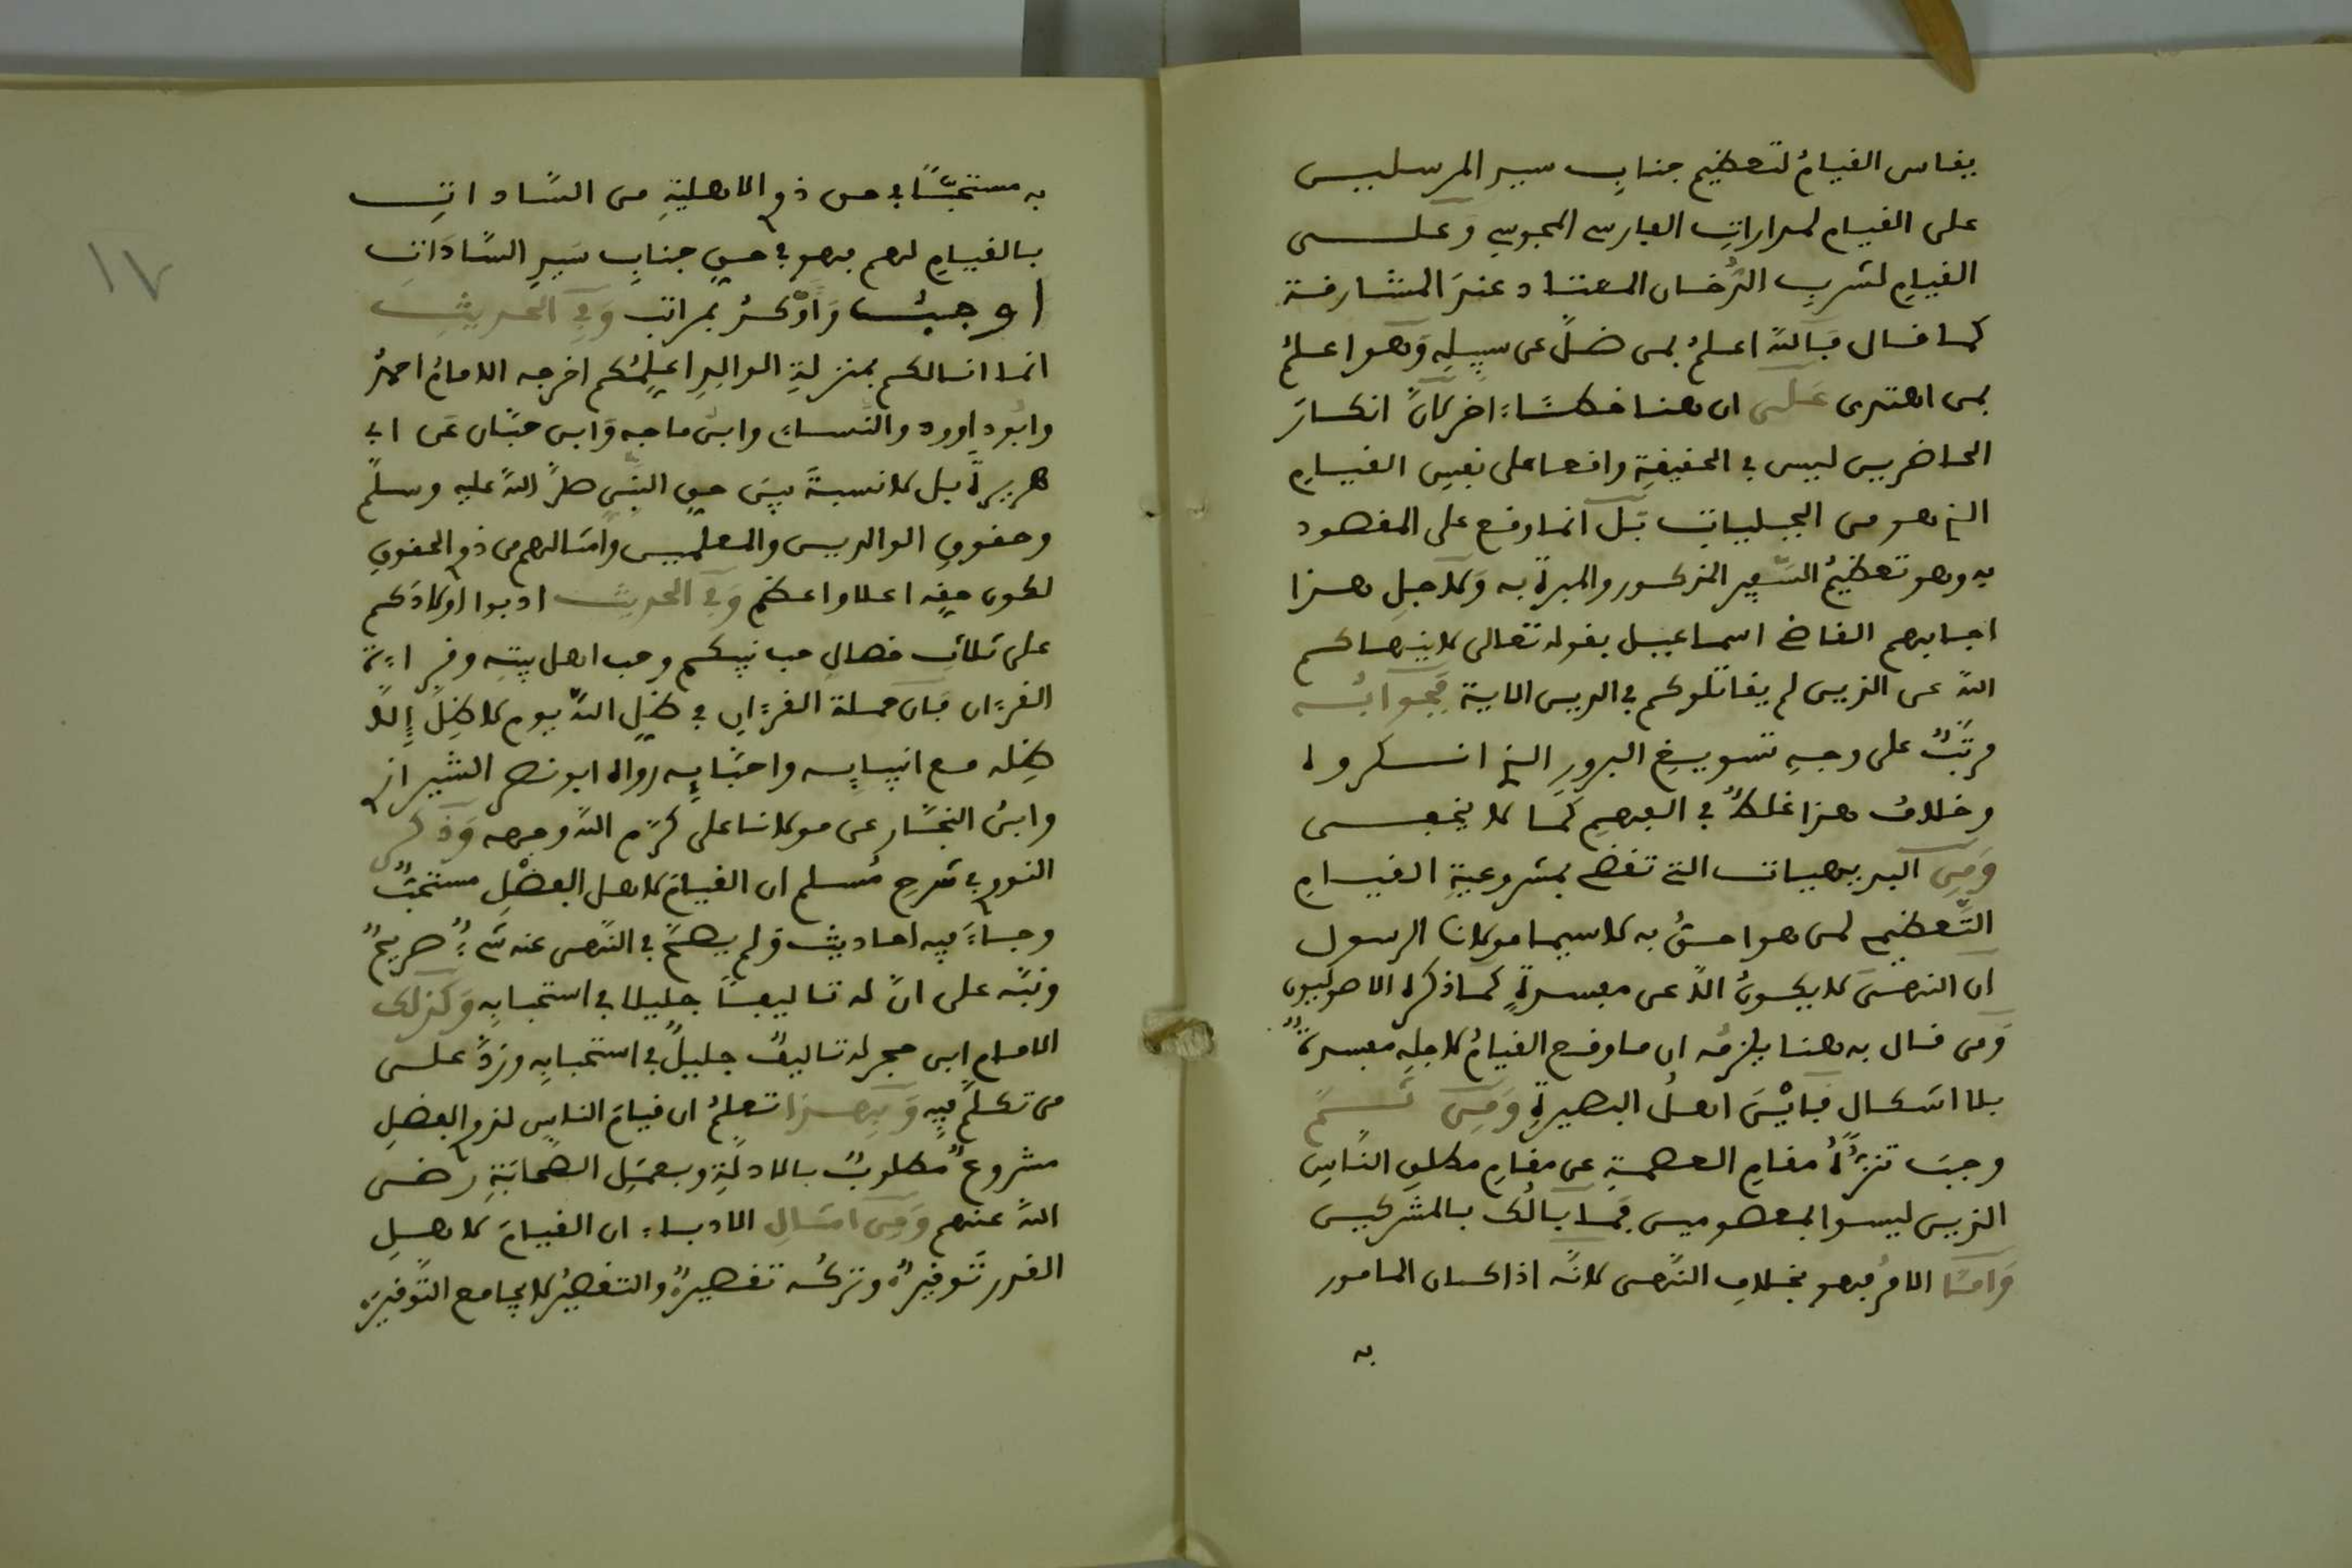 يقاس القيامُ لتعظيم جناب سيد المرسلين
على القيام لمدارات الفارسي المجوسي وَعلـــى
القيام لشرب الدُّخان المعتاد عندَ المشارقة
كما قال فَاللهُ اعلمُ بمن ضلَّ عن سبيلِه وَهو اعلمُ
بمن اهتدى عَلَى ان هنا خطــأ اخر لانَّ انكارَ
الحاضرين ليس في الحقيقةِ واقعا على نفسِ القيامِ
الذي هو من الجبليات بَل انما وقع على المقصود
به وهو تعظيمُ السَّفِير المذكور والمبرة به وَلاجلِ هذا
اجابهم القاضي اسماعيل بقوله تعالى لا ينهاكم
اللهُ عن الذين لم يقاتلوكم في الدين الاية فَجَوابُه
مرتّبٌ على وجهِ تسويغِ البرورِ الذي انكروه
وخلافُ هذا غلطٌ في الفهمِ كمَا لا يخفى
وَمِن البديهيات التي تقضي بمشروعيةِ القيامِ
التَّعظيم لمن هو احقُّ به لاسيما مولانا الرسول
ان النهىَ لا يكونُ الاَّ عن مفسدةٍ كما ذكره الاصوليون
وَمن قال به هنا يلزمُه ان ما وقع القيامُ لاجلِه مفسدةٌ
بلا اشكالٍ فَايْنَ اهلُ البصيرةِ وَمِن ثَــمَّ
وجبَ تنزُّهُ مقامِ العصمةِ عن مقامِ مطلق النَّاسِ
الذين ليسوا بمعصومين فَما بالُك بالمشركين
وَامَّا الامرُ فهو بخلافِ النَّهى لانَّه اذا كان المامور
به
به مستحبًّا في حق ذوي الاهليةِ من السَّاداتِ
بالقيامِ لهم فهو في حقِ جنابِ سَيدِ السَّادَاتِ
اوجبُ وَاَوْكدُ بمراتب وَفي الحديثِ
انما انا لكم بمنزلةِ الوالدِ اعلِّمُكم اخرجه الامامُ احمدُ
وابُو داوود والنَّساءي وابنُ ماجه وَابن حبَّان عَن ابي
هريرة بل لا نسبةَ بينَ حقِ النَّبي صلَّى اللهُ عليه وسلَّم
وحقوقِ الوالدين والمعلمين وامثالهم من ذوي الحقوقِ
لكون حقِه اعلا واعظم وَفي الحديث ادبوا اولادَكم
على ثلاثِ خصالٍ حب نبيكم وحب اهل بيتِه وقراءة
القرءان فَان حملة القرءانِ في ظلِ اللهِ يوم لا ظلَّ إلاَّ
ظِله مع انبيايه واحبَّايِه رواه ابو نصر الشيرازي
وابنُ النجَّار عن مولانا على كرَّم اللهُ وجهه وَذكر
النووي في شرحِ مُسلم ان القيامَ لاهل الفضْلِ مستحبٌّ
وجـاءَ فِيه احاديث وَلم يصحَّ في النَّهى عنه شىءٌ صريحٌ
ونبَّه على انَّ له تاليفًا جليلا في استحبابِه وَكذلك
الامام ابن حجر له تاليفٌ جليلٌ في استحبابِه وردٌّ على
من تكلَّم فِيهِ وَبِهذا تعلمُ ان قيامَ الناسِ لذوي الفضلِ
مشروعٌ مطلوبٌ بالادلةِ وبعملِ الصحَابَةِ رضى
اللهُ عنهم وَمِن امثالِ الادباء ان القيامَ لاهلِ
القدرِ تَوقيرٌ وتركُه تقصيرٌ والتقصيرُ لا يجامع التَّوقيرَ
١٧